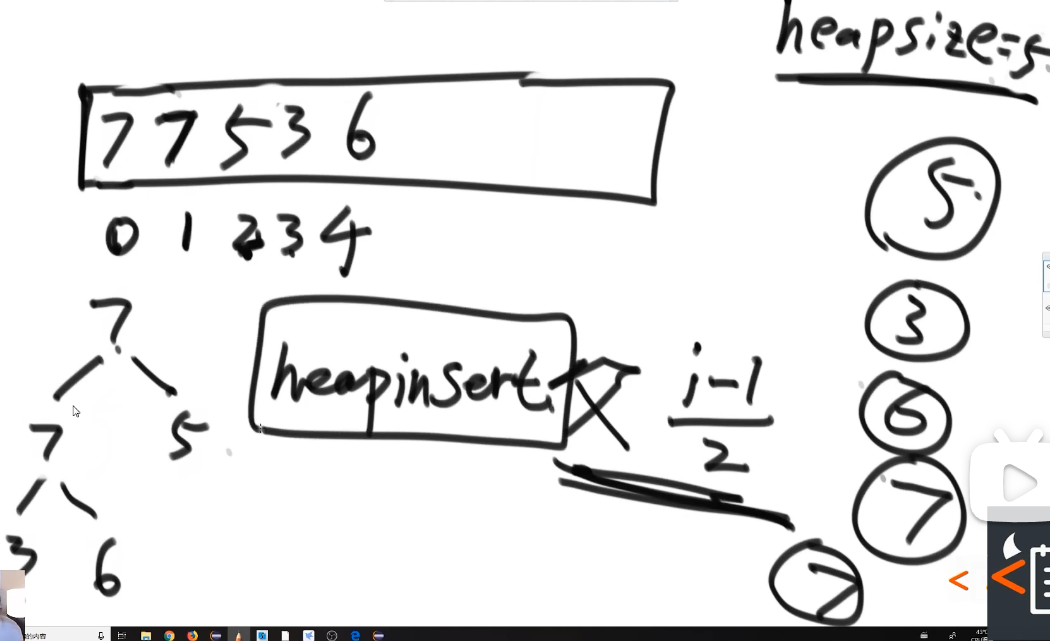 heapsize=5
7 7 5 3 6
0 1 2 3 4
5
3
6
7
7
7
7 5
3 6
heapinsert
i-1
2
43°C